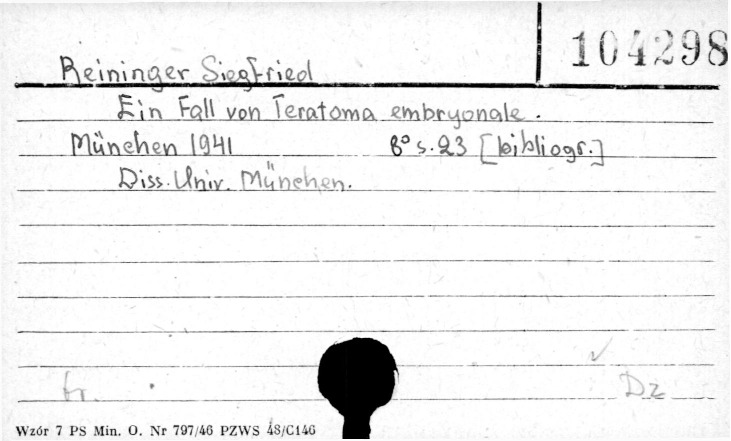 104298
Reininger Siegfried
Ein Fall von Teratoma embryonale.
München 1941 8° s. 23 [bibliogr.]
Diss. Univ. München.
Dz
Wzór 7 PS Min. O. Nr 797/46 PZWS 48/C146